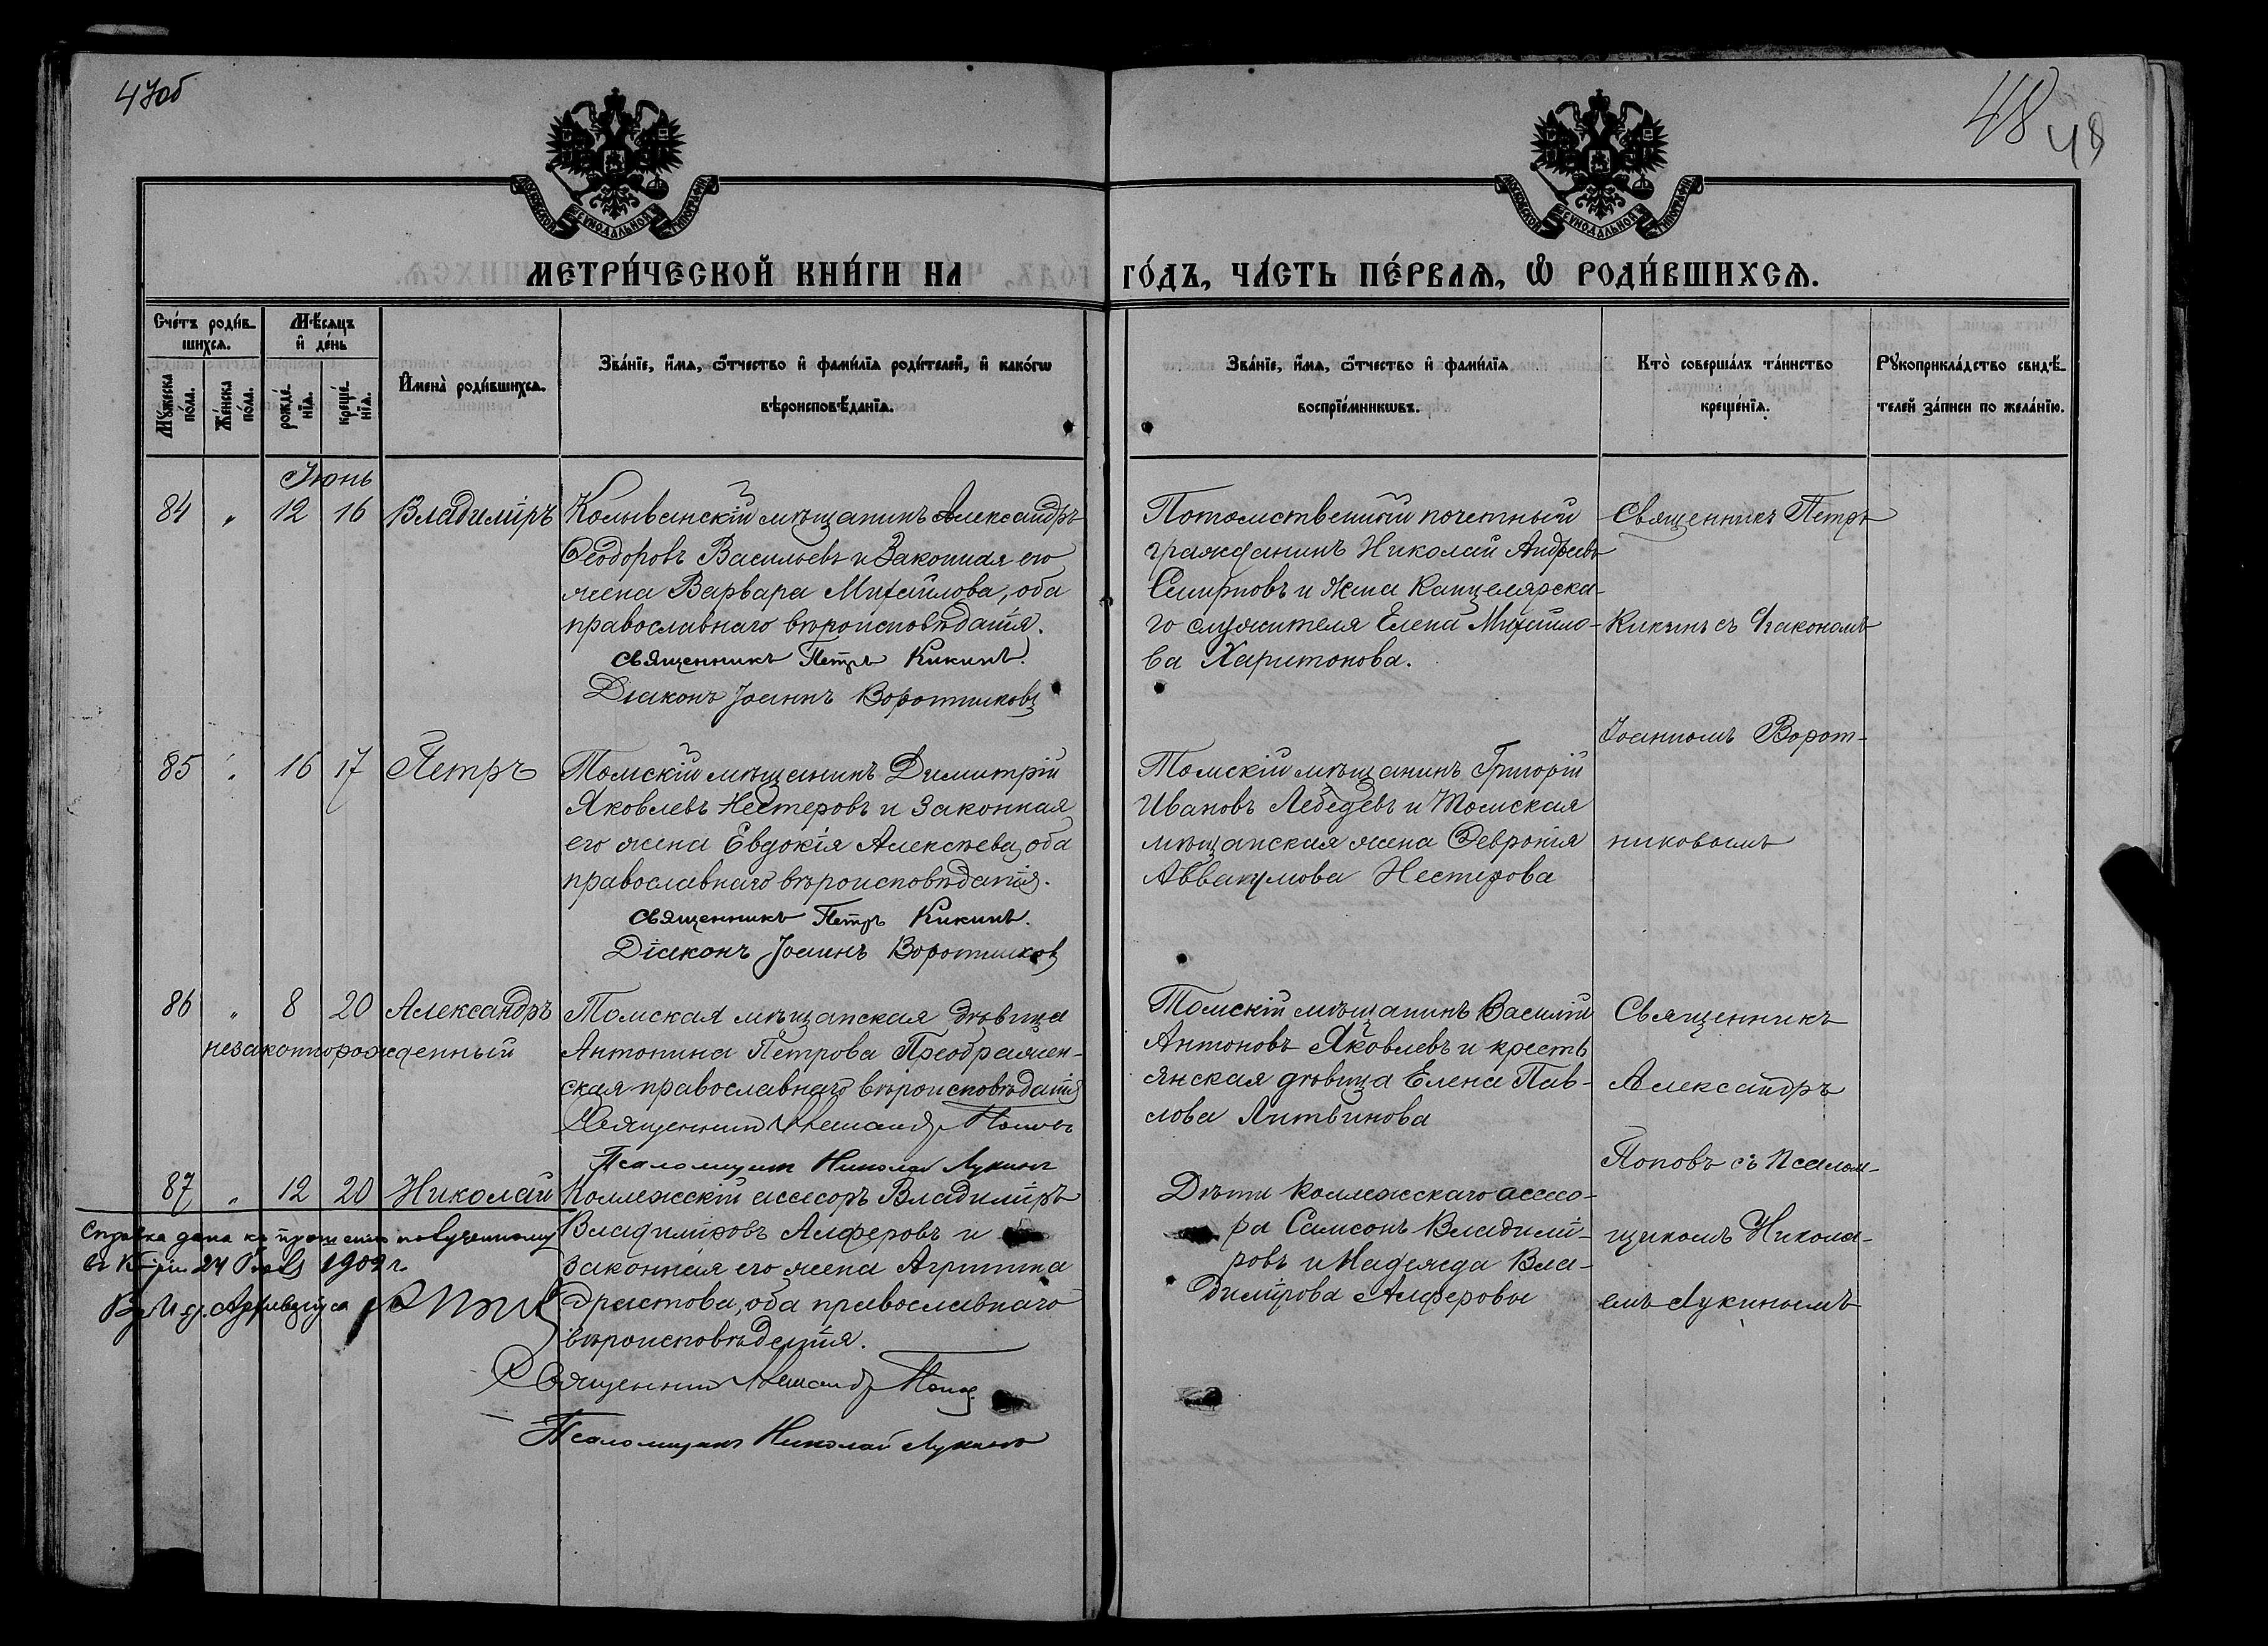 47об
48
48
МОСКОВСКОЙ СѴНОДАЛЬНОЙ ТИПОГРАФІИ
МОСКОВСКОЙ СѴНОДАЛЬНОЙ ТИПОГРАФІИ
МЕТРИ́ЧЕСКОЙ КНИ́ГИ НА ГО́ДЪ, ЧА́СТЬ ПЕ́РВАѦ, Ѽ РОДИ́ВШИХСѦ.
Сче́тъ роди́в-
шихсѧ.
Мѣ́сѧцъ
и҆ де́нь
Мꙋ́жеска
по́ла.
Же́нска
по́ла.
рожде́-
нїѧ.
креще́-
нїѧ.
И҆мена̀ роди́вшихсѧ.
Зва́нїе, и҆́мѧ, ѻ҆́тчество и҆ фами́лїѧ роди́телей, и҆ како́гѡ
вѣроисповѣ́данїѧ.
Зва́нїе, и҆́мѧ, ѻ҆́тчество и҆ фами́лїѧ
воспрїе́мникѡвъ.
Кто̀ соверша́лъ та́инство
креще́нїѧ.
Рꙋкоприкла́дство свидѣ́-
телей за́писи по жела́нїю.
Іюнь
84 „ 12 16 Владиміръ
Колыванскій мѣщанинъ Александръ
Ѳеодоровъ Васильевъ и законная его
жена Варвара Михайлова, оба
православнаго вѣроисповѣданія.
Священникъ Петръ Кикинъ.
Діаконъ Іоаннъ Воротниковъ
Потомственный почетный
гражданинъ Николай Андреевъ
Смирновъ и жена канцелярска-
го служителя Елена Михайло-
ва Харитонова.
Священникъ Петръ
Кикинъ съ діакономъ
Іоанномъ Ворот-
никовымъ
85 „ 16 17 Петръ
Томскій мѣщанинъ Димитрій
Яковлевъ Нестеровъ и законная
его жена Евдокія Алексѣева, оба
православнаго вѣроисповѣданія.
Священникъ Петръ Кикинъ.
Діаконъ Іоаннъ Воротниковъ
Томскій мѣщанинъ Григорій
Ивановъ Лебедевъ и Томская
мѣщанская жена Февронія
Аввакумова Нестерова
86 „ 8 20 Александръ
незаконнорожденный
Томская мѣщанская дѣвица
Антонина Петрова Преображен-
ская православнаго вѣроисповѣданія
Священникъ Александръ Поповъ
Псаломщикъ Николай Лукинъ
Томскій мѣщанинъ Василій
Антоновъ Яковлевъ и кресть
янская дѣвица Елена Пав-
лова Литвинова
Священникъ
Александръ
Поповъ съ псалом-
щикомъ Никола-
емъ Лукинымъ
87 „ 12 20 Николай
Коллежскій ассесоръ Владиміръ
Владиміровъ Алферовъ и
законная его жена Агриппина
Эрастова, оба православнаго
вѣроисповѣданія.
Священникъ Александръ Поповъ
Псаломщикъ Николай Лукинъ
Дѣти Коллежскаго ассесо-
ра Самсонъ Владимі-
ровъ и Надежда Вла-
димірова Алферовы
Справка дана къ прошенію полученному
24 1909 г.